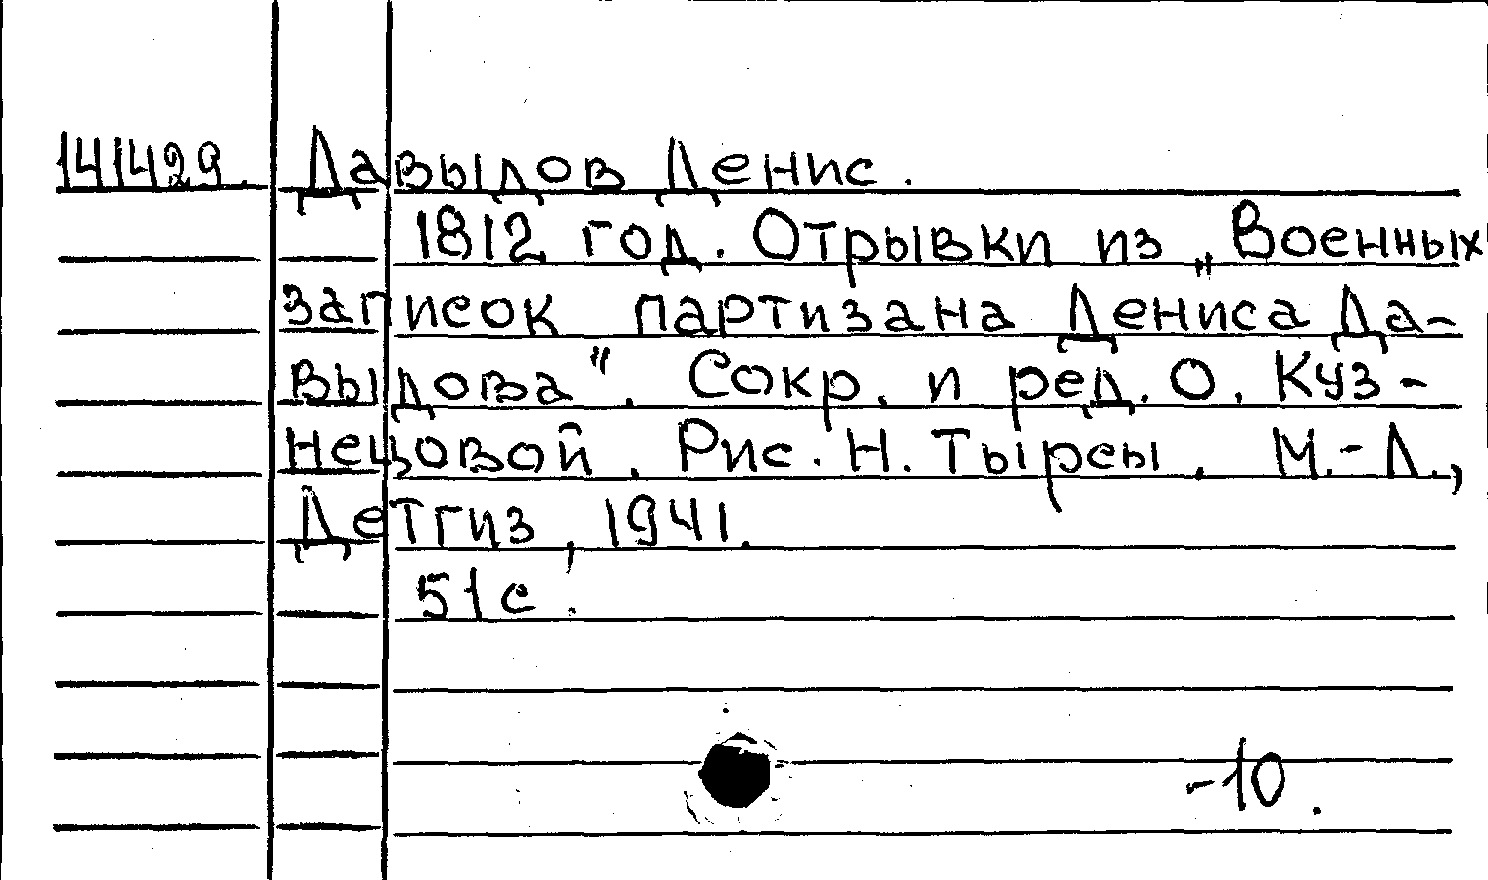 141429. Давыдов Денис.
1812 год. Отрывки из „Военных
записок партизана Дениса Да-
выдова". Сокр. и ред. О. Куз-
нецовой. Рис. Н. Тырсы. М.-Л.,
Детгиз, 1941.
51 с.
-10.